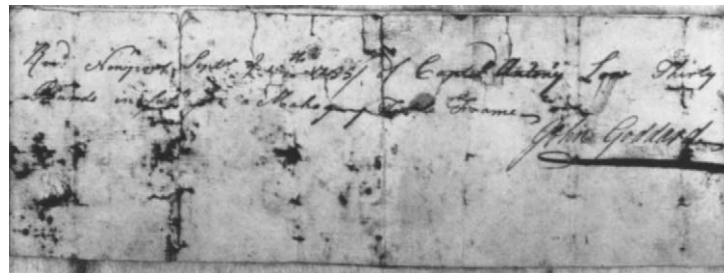 Rec'd Newport Sept. 1755 of Captn Antony Low Thirty
Pounds in full for a Mahogany Table Frame
John Goddard